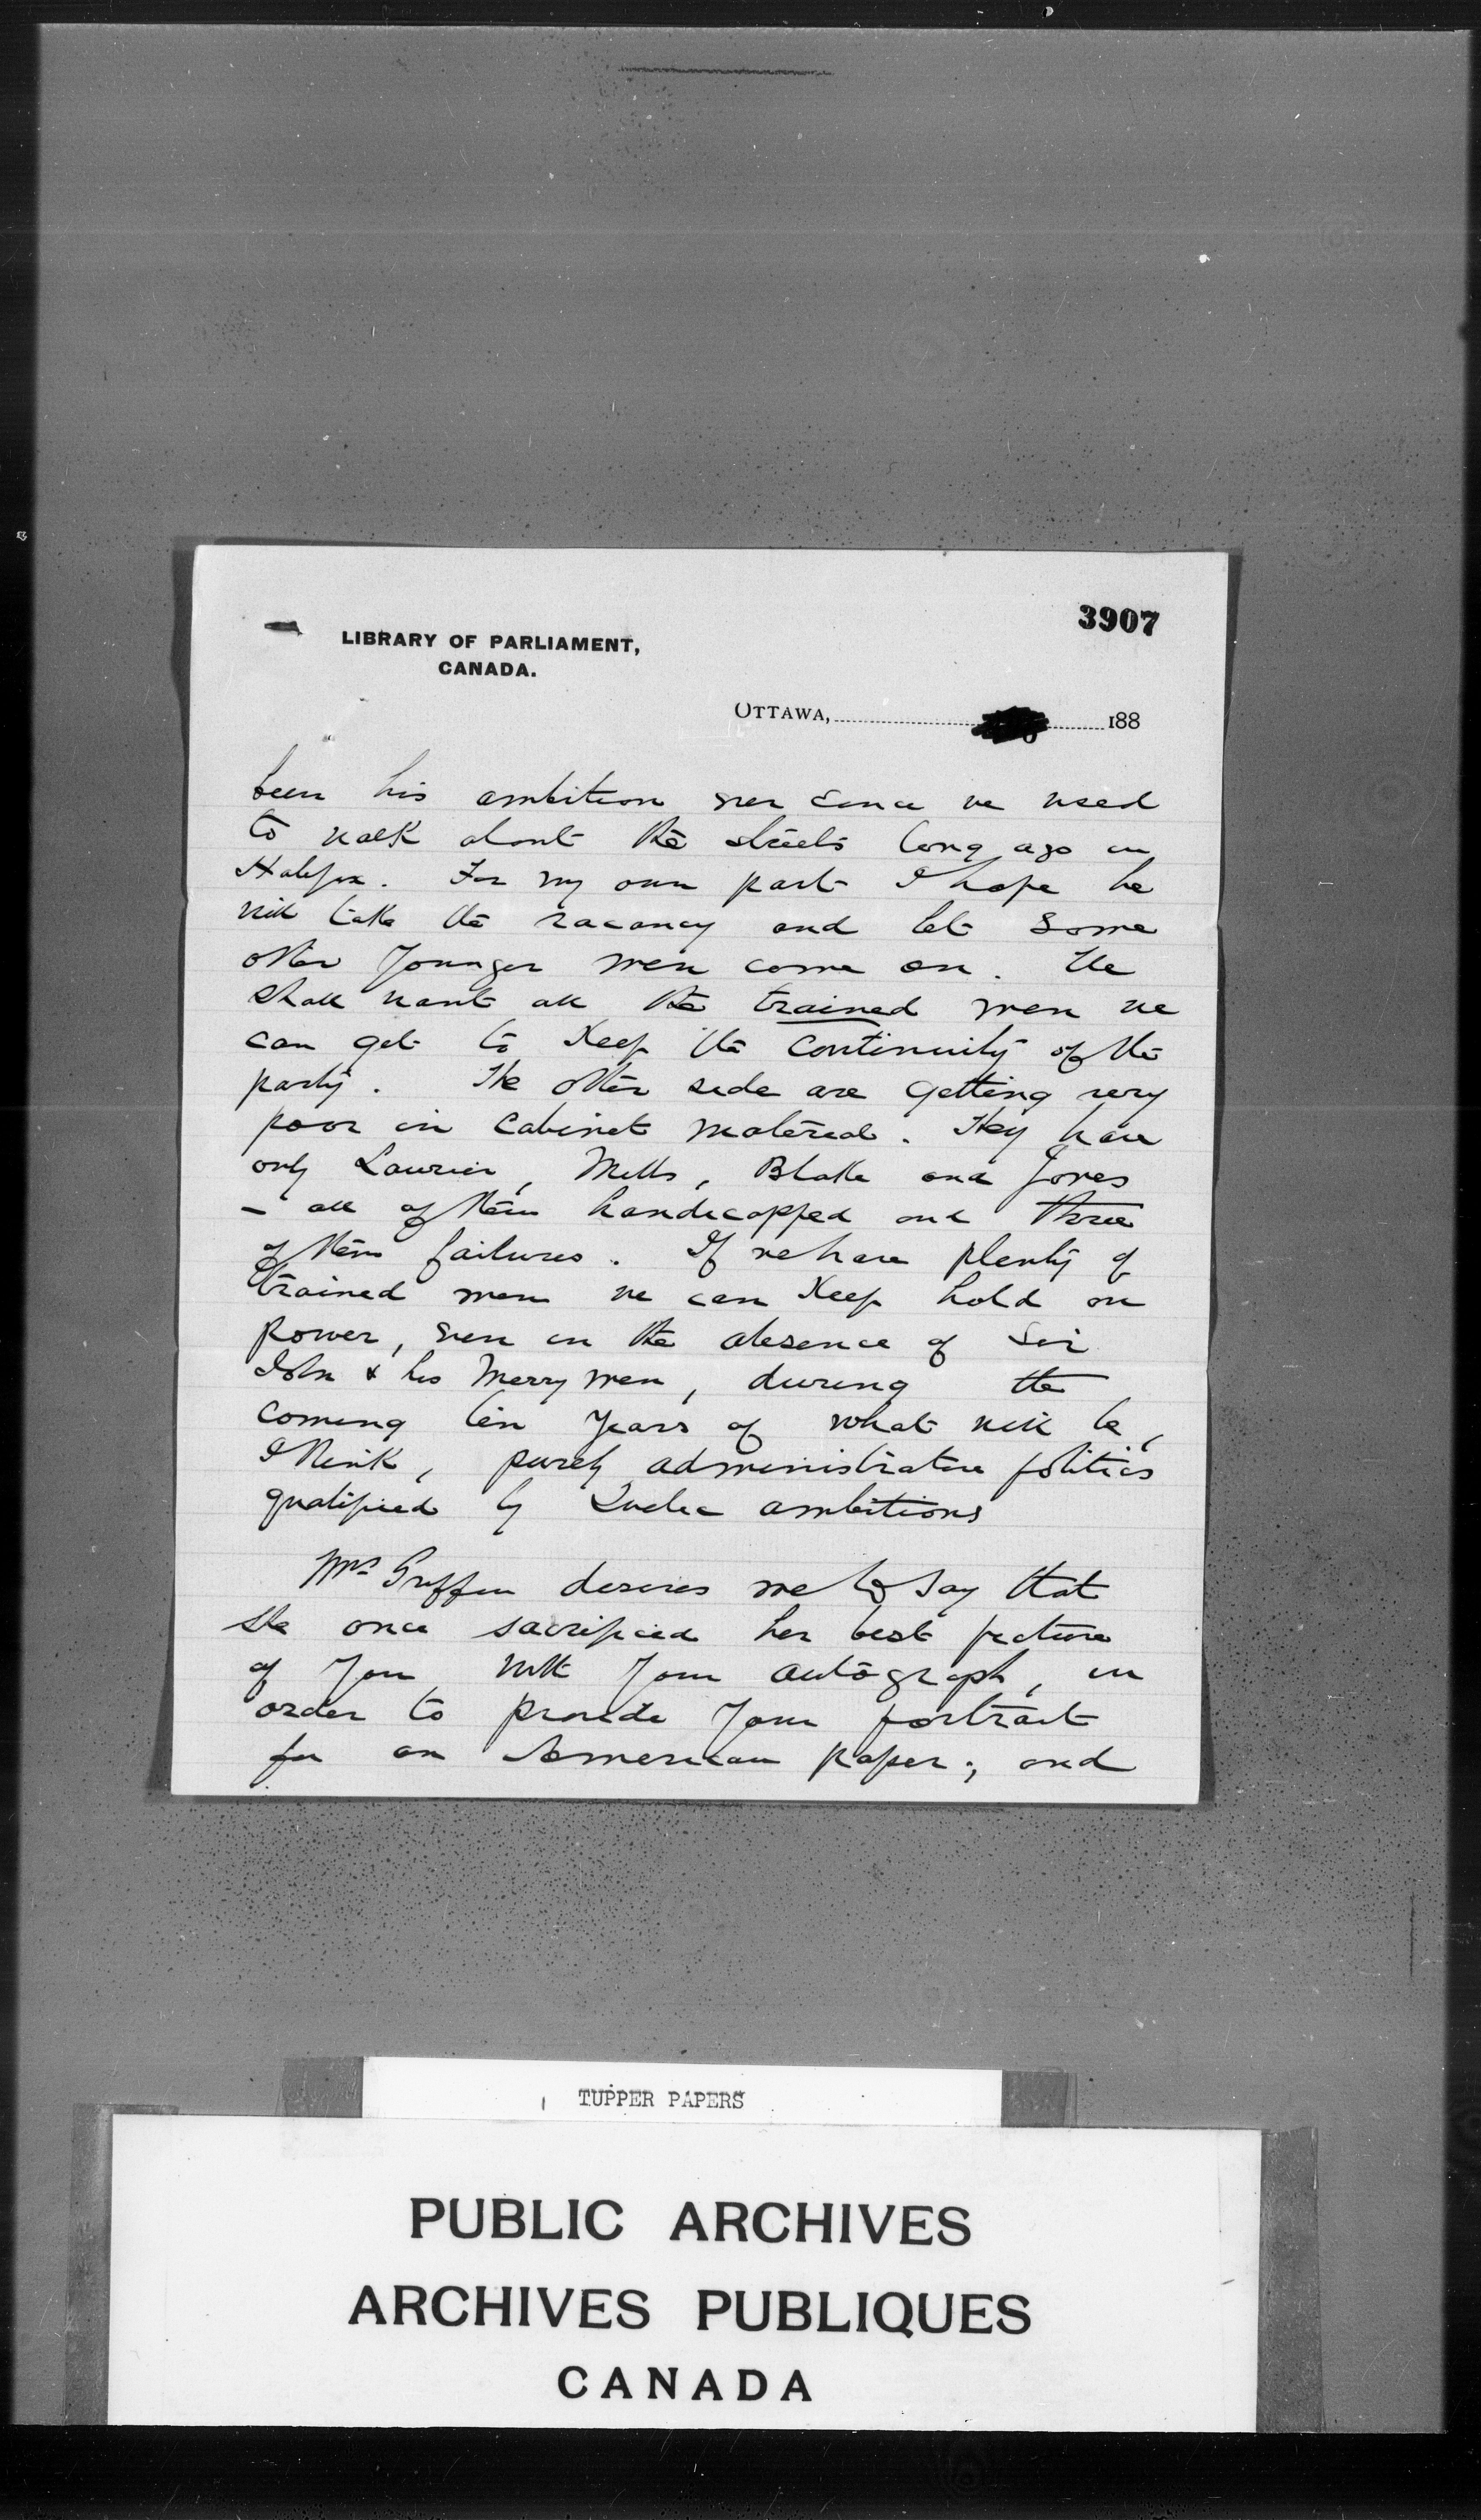 3907
LIBRARY OF PARLIAMENT,
CANADA.
OTTAWA, 188
been his ambition ever since we used
to walk about the streets long ago in
Halifax. For my own part I hope he
will take the vacancy and let some
other younger men come on. We
shall want all the trained men we
can get to keep the continuity of the
party. The other side are getting very
poor in Cabinet material. They have
only Laurier, Mills, Blake and Jones
- all of them handicapped and three
of them failures. If we have plenty of
trained men we can keep hold on
power, even in the absence of Sir
John & his merry men, during the
coming ten years of what will be,
I think, purely administrative politics
qualified by Quebec ambitions
Mrs Griffin desires me to say that
she once sacrificed her best picture
of you with your autograph, in
order to provide your portrait
for an American paper; and
TUPPER PAPERS
PUBLIC ARCHIVES
ARCHIVES PUBLIQUES
CANADA